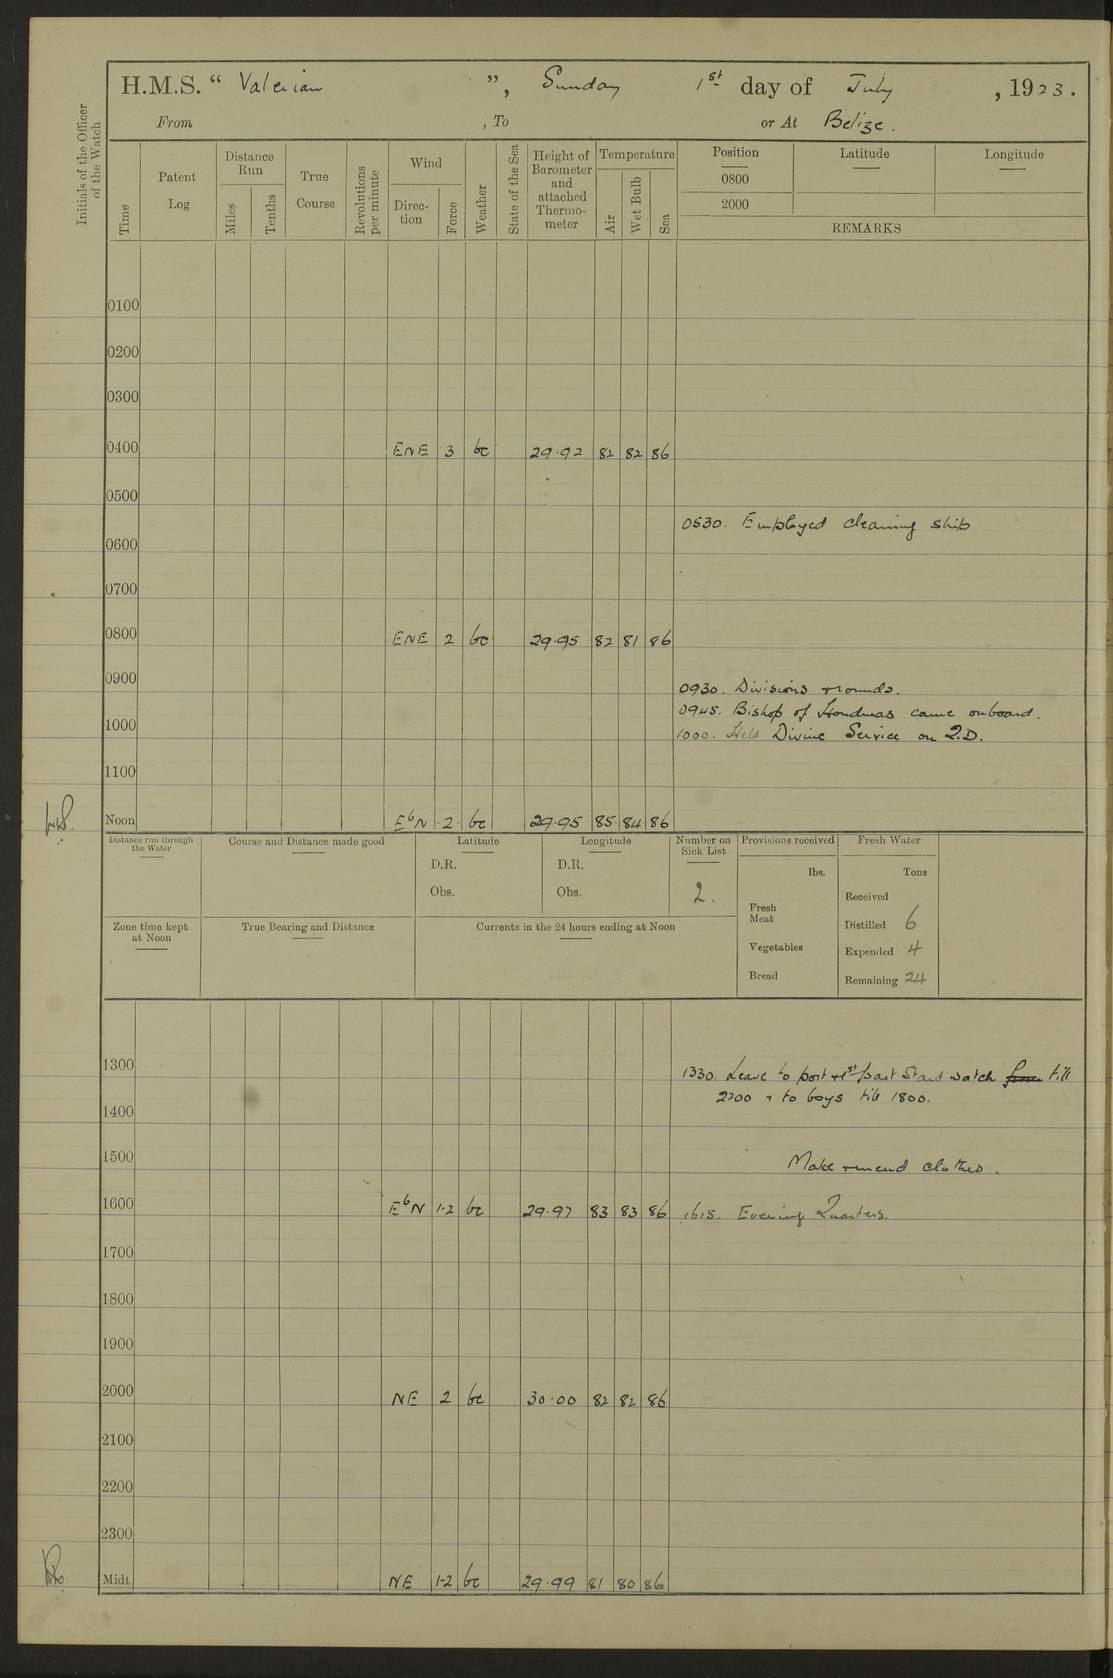 H.M.S. “ Valerian ”, Sunday 1st day of July , 1923.
From , To or At Belize.
Initials of the Officer of the Watch
Time
Patent Log
Distance Run
Miles
Tenths
True Course
Revolutions per minute
Wind
Direc-tion
Force
Weather
State of the Sea
Height of Barometer and attached Thermo-meter
Temperature
Air
Wet Bulb
Sea
Position Latitude Longitude
0800
2000
REMARKS
0100
0200
0300
0400 ENE 3 bc 29.92 82 82 86
0500
0530. Employed cleaning ship
0600
0700
0800 ENE 2 bc 29.95 82 81 86
0900
0930. Divisions & rounds.
0945. Bishop of Honduras came onboard.
1000 1000. Held Divine Service on Q.D.
1100
Noon EbN 2 bc 29.95 85 84 86
Distance run through the Water
Course and Distance made good
Latitude
D.R.
Obs.
Longitude
D.R.
Obs.
Number on Sick List
2.
Provisions received
lbs.
Fresh Meat
Vegetables
Bread
Fresh Water
Tons
Received
Distilled 6
Expended 4
Remaining 24
Zone time kept at Noon
True Bearing and Distance
Currents in the 24 hours ending at Noon
1300 1330. Leave to port & 1st part Starb watch from till
2200 & to boys till 1800.
1400
1500 Make & mend clothes.
1600 EbN 1-2 bc 29.97 83 83 86 1615. Evening Quarters.
1700
1800
1900
2000 NE 2 bc 30.00 82 82 86
2100
2200
2300
Midt NE 1-2 bc 29.99 81 80 86